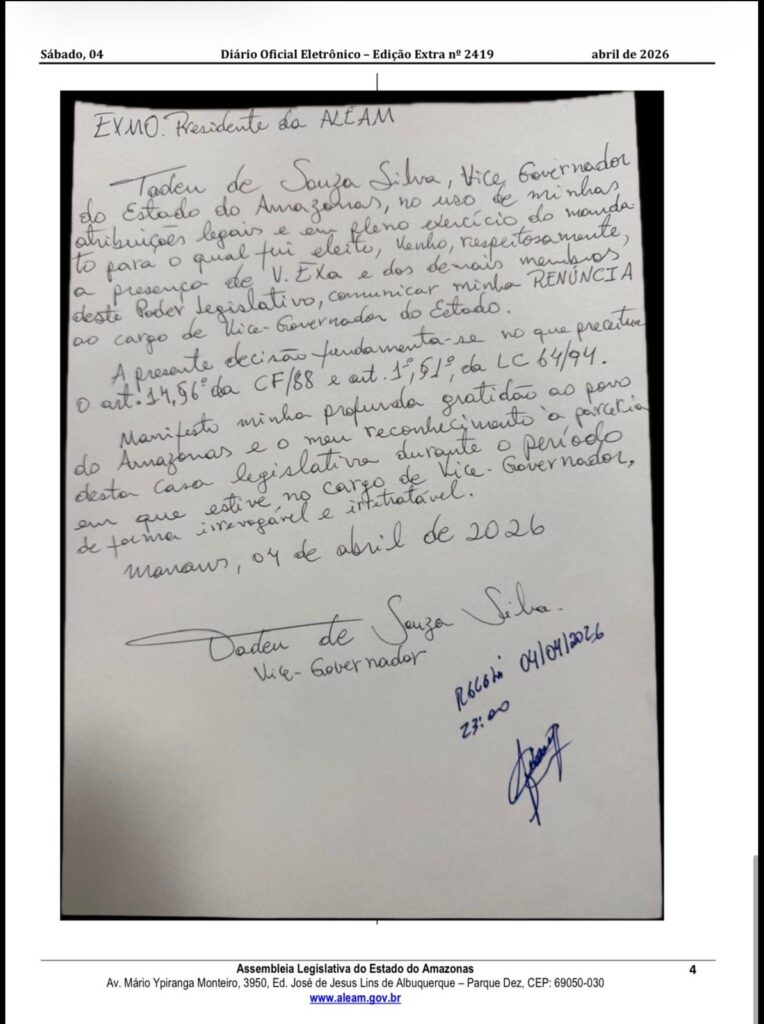 Sábado, 04 Diário Oficial Eletrônico – Edição Extra nº 2419 abril de 2026
EXMO. Presidente da ALEAM
Tadeu de Souza Silva, Vice Governador
do Estado do Amazonas, no uso de minhas
atribuições legais e em pleno exercício do manda-
to para o qual fui eleito, venho, respeitosamente,
a presença de V. EXa e dos demais membros
deste Poder Legislativo, comunicar minha RENÚNCIA
ao cargo de Vice-Governador do Estado.
A presente decisão fundamenta-se no que preceitua
o art. 14, §6º da CF/88 e art. 1º, §1º, da LC 64/94.
Manifesto minha profunda gratidão ao povo
do Amazonas e o meu reconhecimento à parceria
desta casa legislativa durante o período
em que estive no cargo de Vice-Governador,
de forma irrevogável e irretratável.
Manaus, 04 de abril de 2026
Tadeu de Souza Silva.
Vice-Governador
Recebi 04/04/2026
23:00
Assembleia Legislativa do Estado do Amazonas 4
Av. Mário Ypiranga Monteiro, 3950, Ed. José de Jesus Lins de Albuquerque – Parque Dez, CEP: 69050-030
www.aleam.gov.br